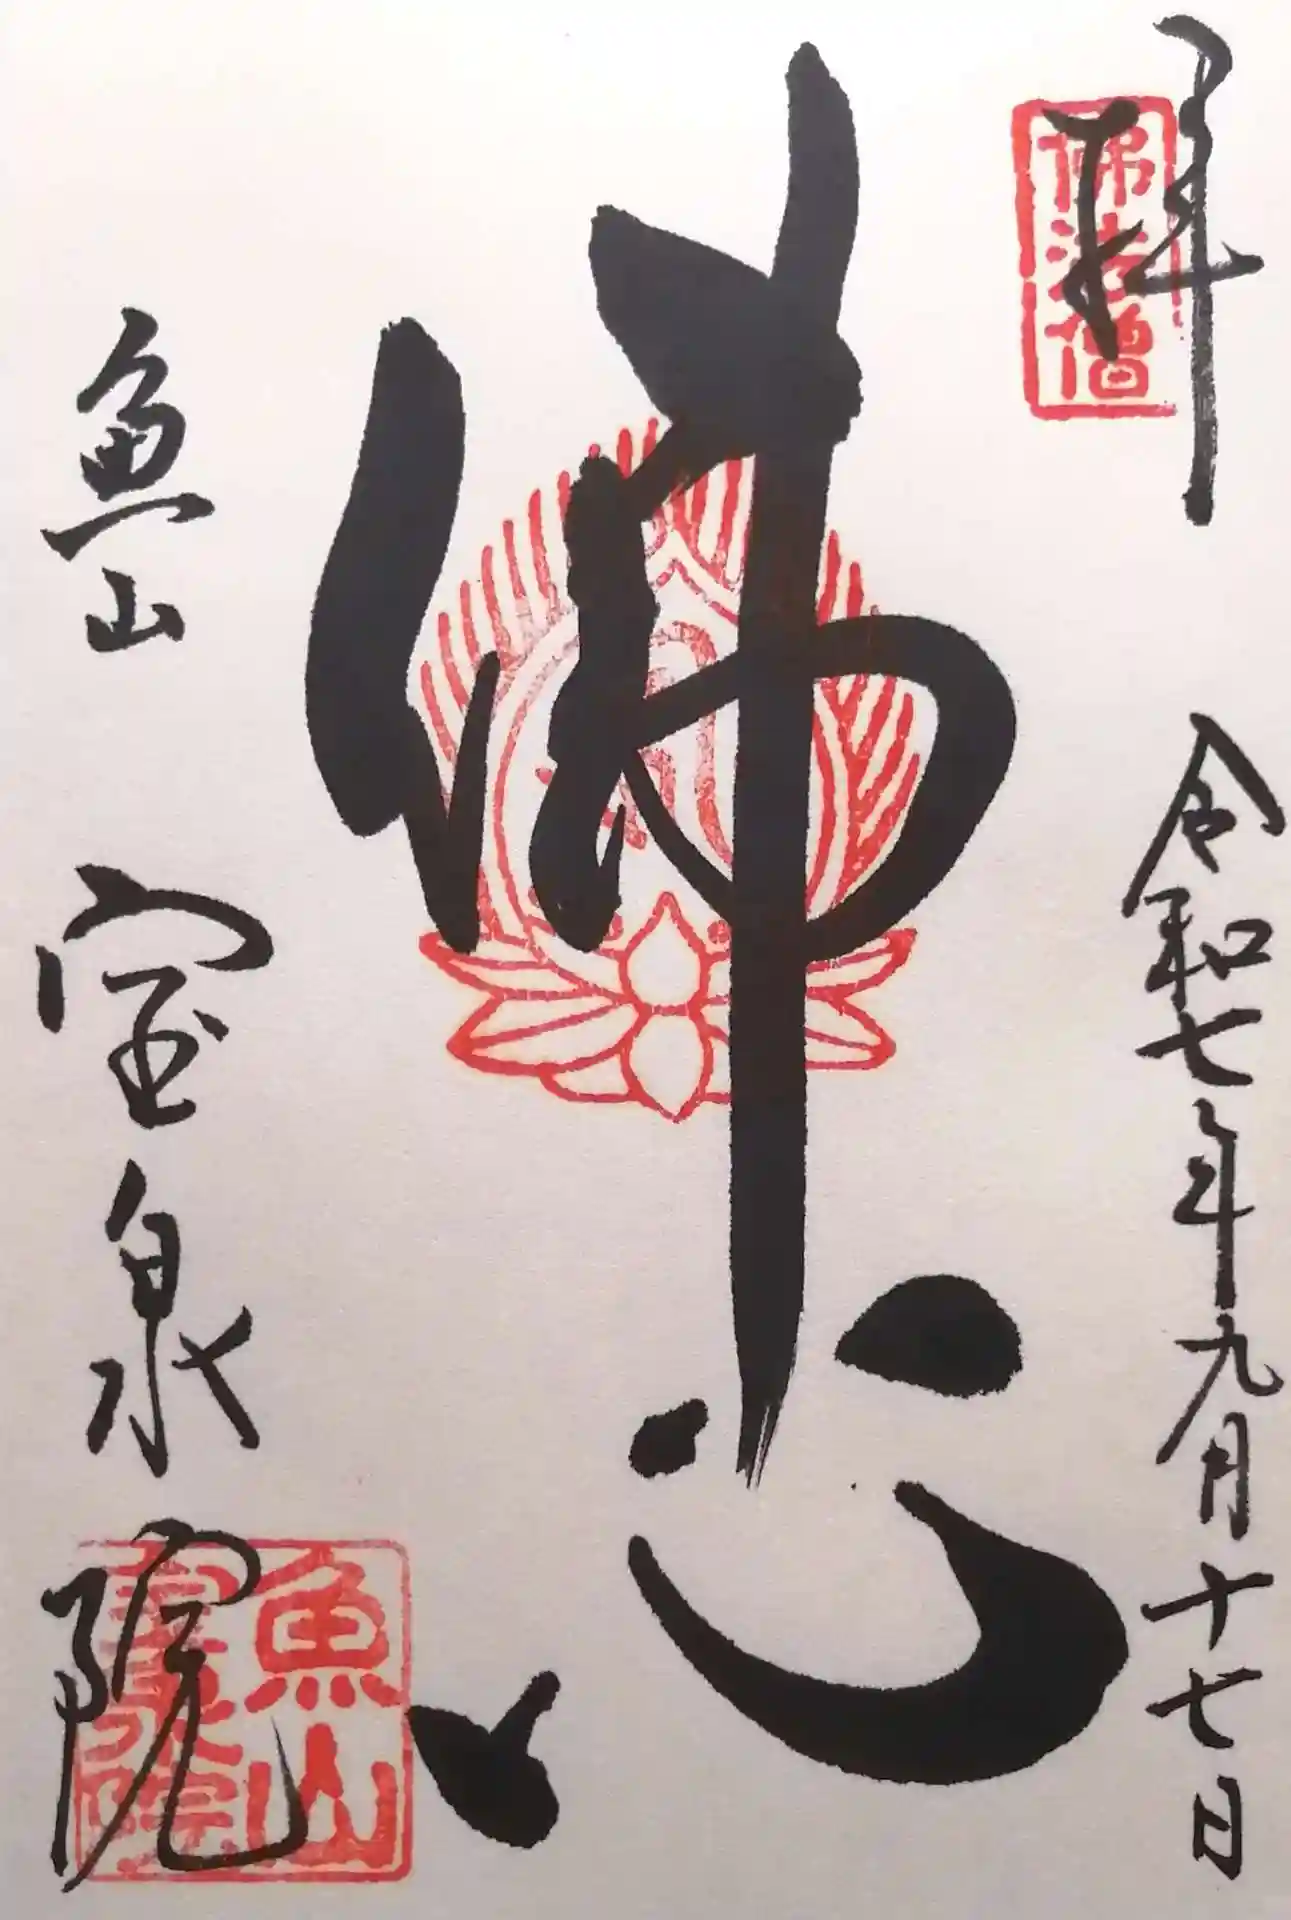 拝
佛法僧
令和七年九月十七日
佛心
魚山
宝泉院
魚山
寳泉院